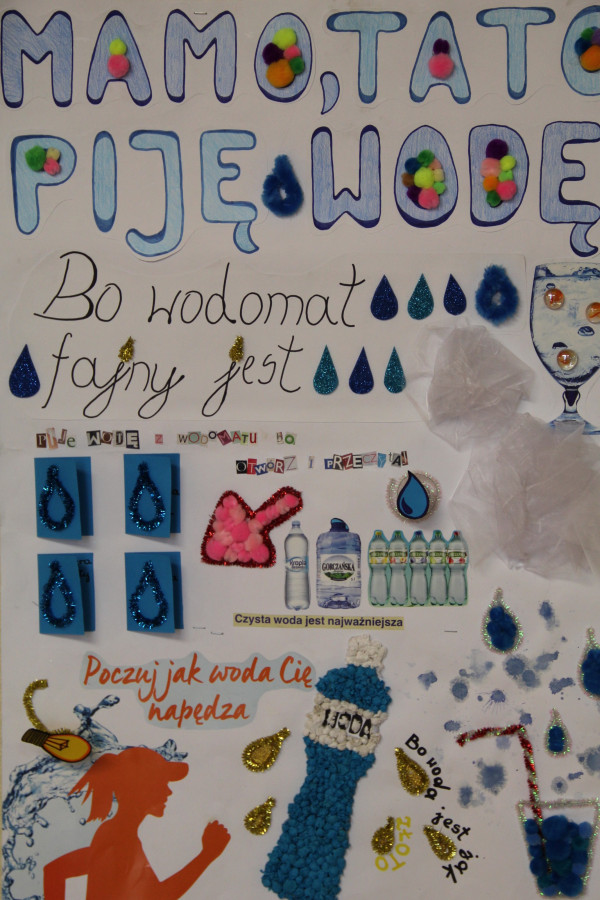 MAMO, TATO
PIJĘ WODĘ
Bo wodomat
fajny jest
PIJE WODĘ Z WODOMATU BO
OTWÓRZ I PRZECZYTAJ
Kropla
GORCZAŃSKA
Czysta woda jest najważniejsza
Poczuj jak woda Cię
napędza
WODA
Bo woda jest jak
ZŁOTO